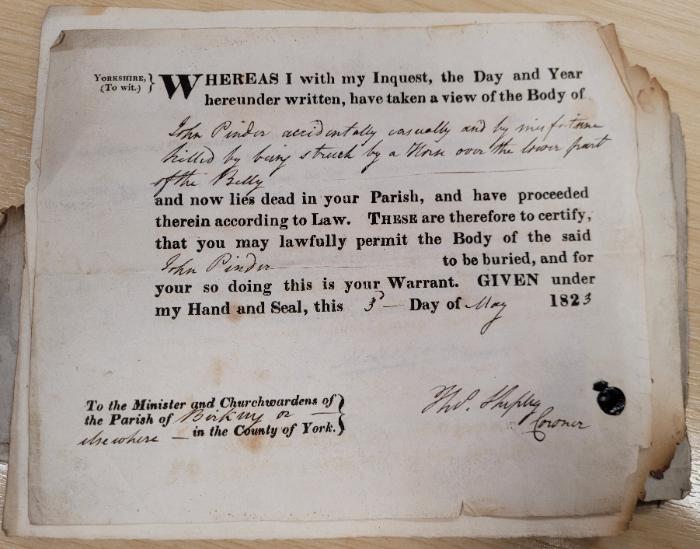 YORKSHIRE, (To wit.) } WHEREAS I with my Inquest, the Day and Year
hereunder written, have taken a view of the Body of
John Pinder accidentally casually and by misfortune
killed by being struck by a Horse over the lower part
of the Belly
and now lies dead in your Parish, and have proceeded
therein according to Law. THESE are therefore to certify,
that you may lawfully permit the Body of the said
John Pinder to be buried, and for
your so doing this is your Warrant. GIVEN under
my Hand and Seal, this 3d Day of May 1823
To the Minister and Churchwardens of
the Parish of or
elsewhere in the County of York. }
Thos. Shepley
Coroner